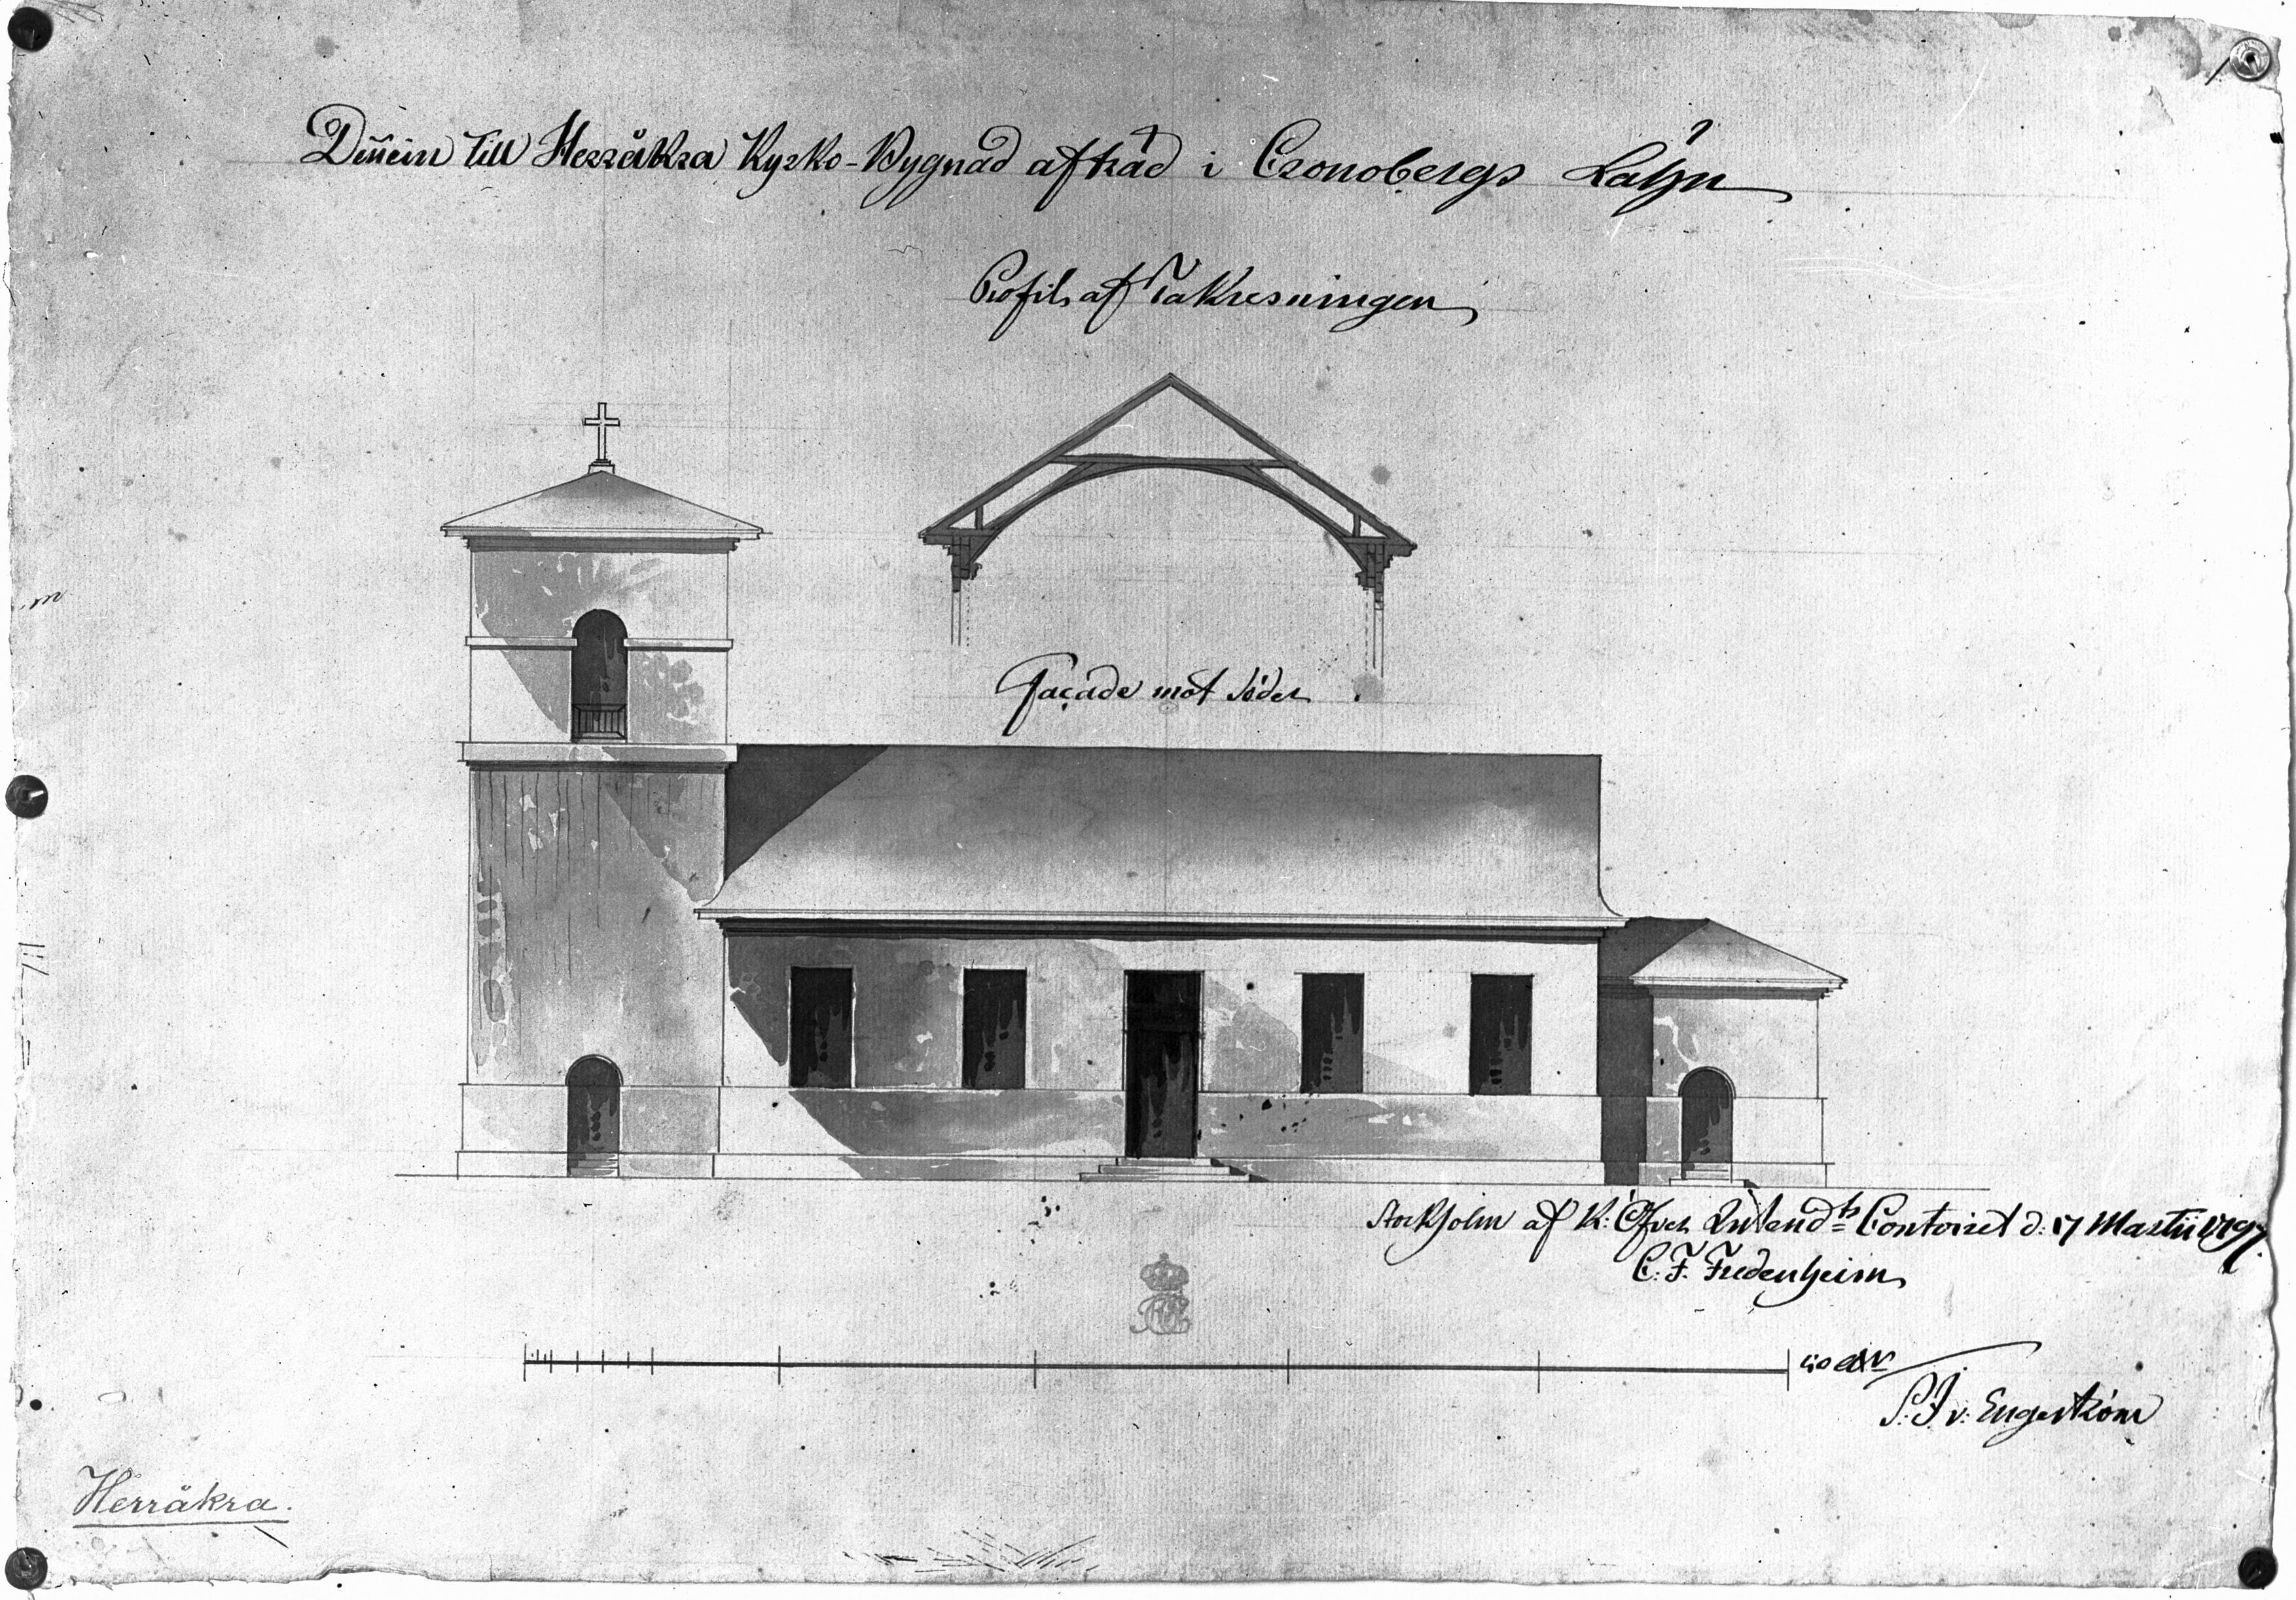 Dessein till Herråkra Kyrko-Bygnad
i Cronobergs Lähn
Profil af Takresningen
Façade mot Söder
Stockholm af K: Öfver Intend:ts Contoiret d. 17 Martii 1797.
C. F. Fredenheim
50 aln
P: J v: Engeström
Herråkra.